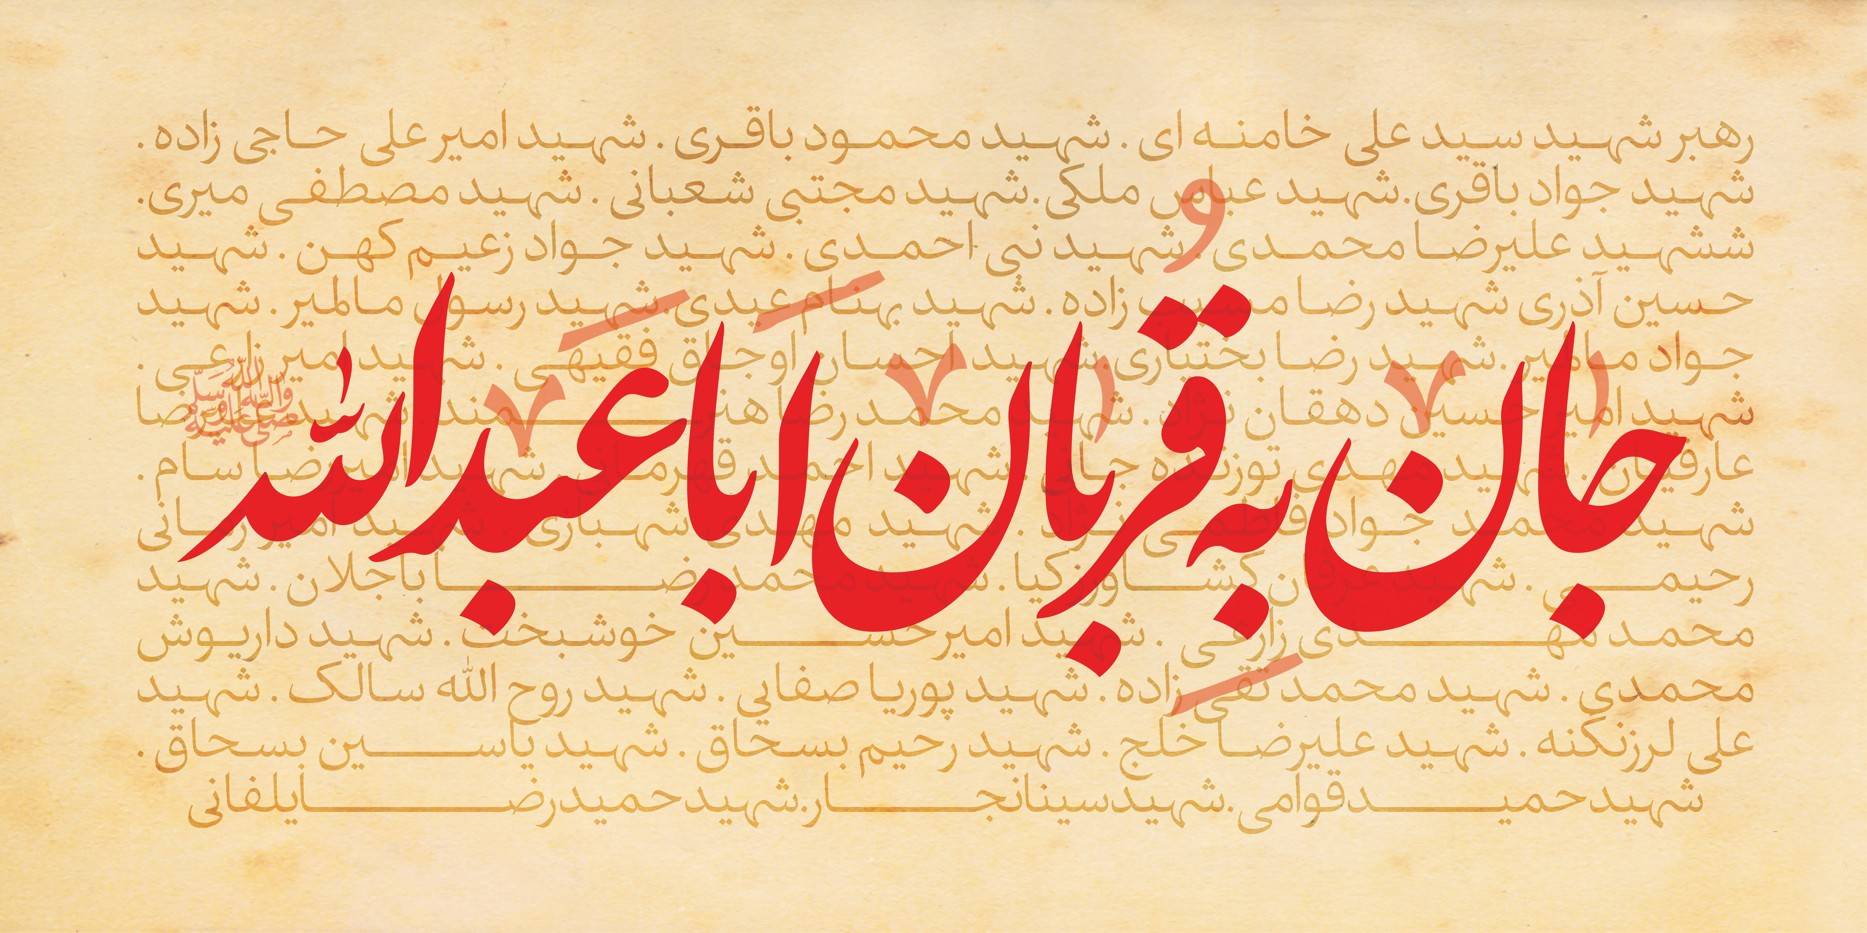 جان به قربان اباعبدالله
رهبر شهید سید علی خامنه ای . شهید محمود باقری . شهید امیرعلی حاجی زاده .
شهید جواد باقری.شهید عباس ملکی.شهید مجتبی شعبانی . شهید مصطفی میری.
ششهید علیرضا محمدی.شهید نبی احمدی . شهید جواد زعیم کهن . شهید
حسین آذری شهید رضا زاده . شهید بهنام عبدی.شهید رسول مالمیر . شهید
جواد مالمیر.شهید رضا بختیاری.شهید احسان اوجاق فقیهی . شهید امیر زارعی .
شهید امیر حسین دهقان نژاد . شهید محمد رضا شهید
شهید مهدی شهید احمد قهرمانی . شهید امیررضا سام .
شهید محمد جواد فاطمی نژاد . شهید مهدی شهبازی . شهید امیر
رحیمی . شهید عرفان کشاورزکیا . شهید محمد رضا باجلان . شهید
محمد مهدی زارعی . شهید امیرحسین خوشبخت . شهید داریوش
محمدی . شهید محمد تقی زاده . شهید پوریا صفایی . شهید روح الله سالک . شهید
علی لرزنکنه . شهید علیرضا خلج . شهید رحیم بسحاق . شهید یاسین بسحاق .
شهیدحمیدقوامی.شهیدسینانجار.شهیدحمیدرضایلفانی